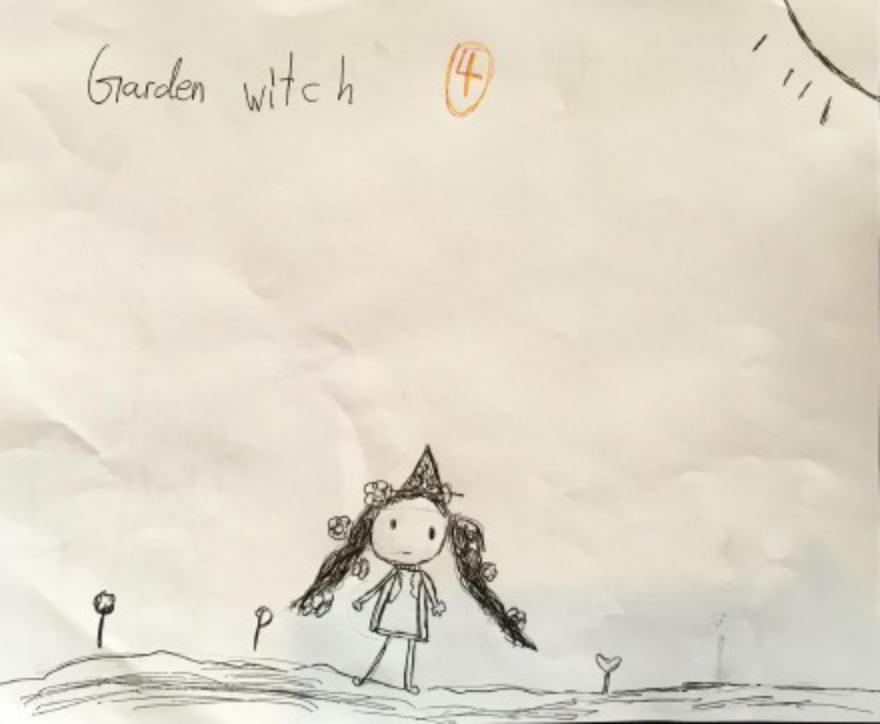 Garden witch 4